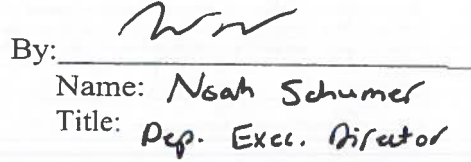 By:
Name: Noah Schumer
Title: Dep. Exec. Director